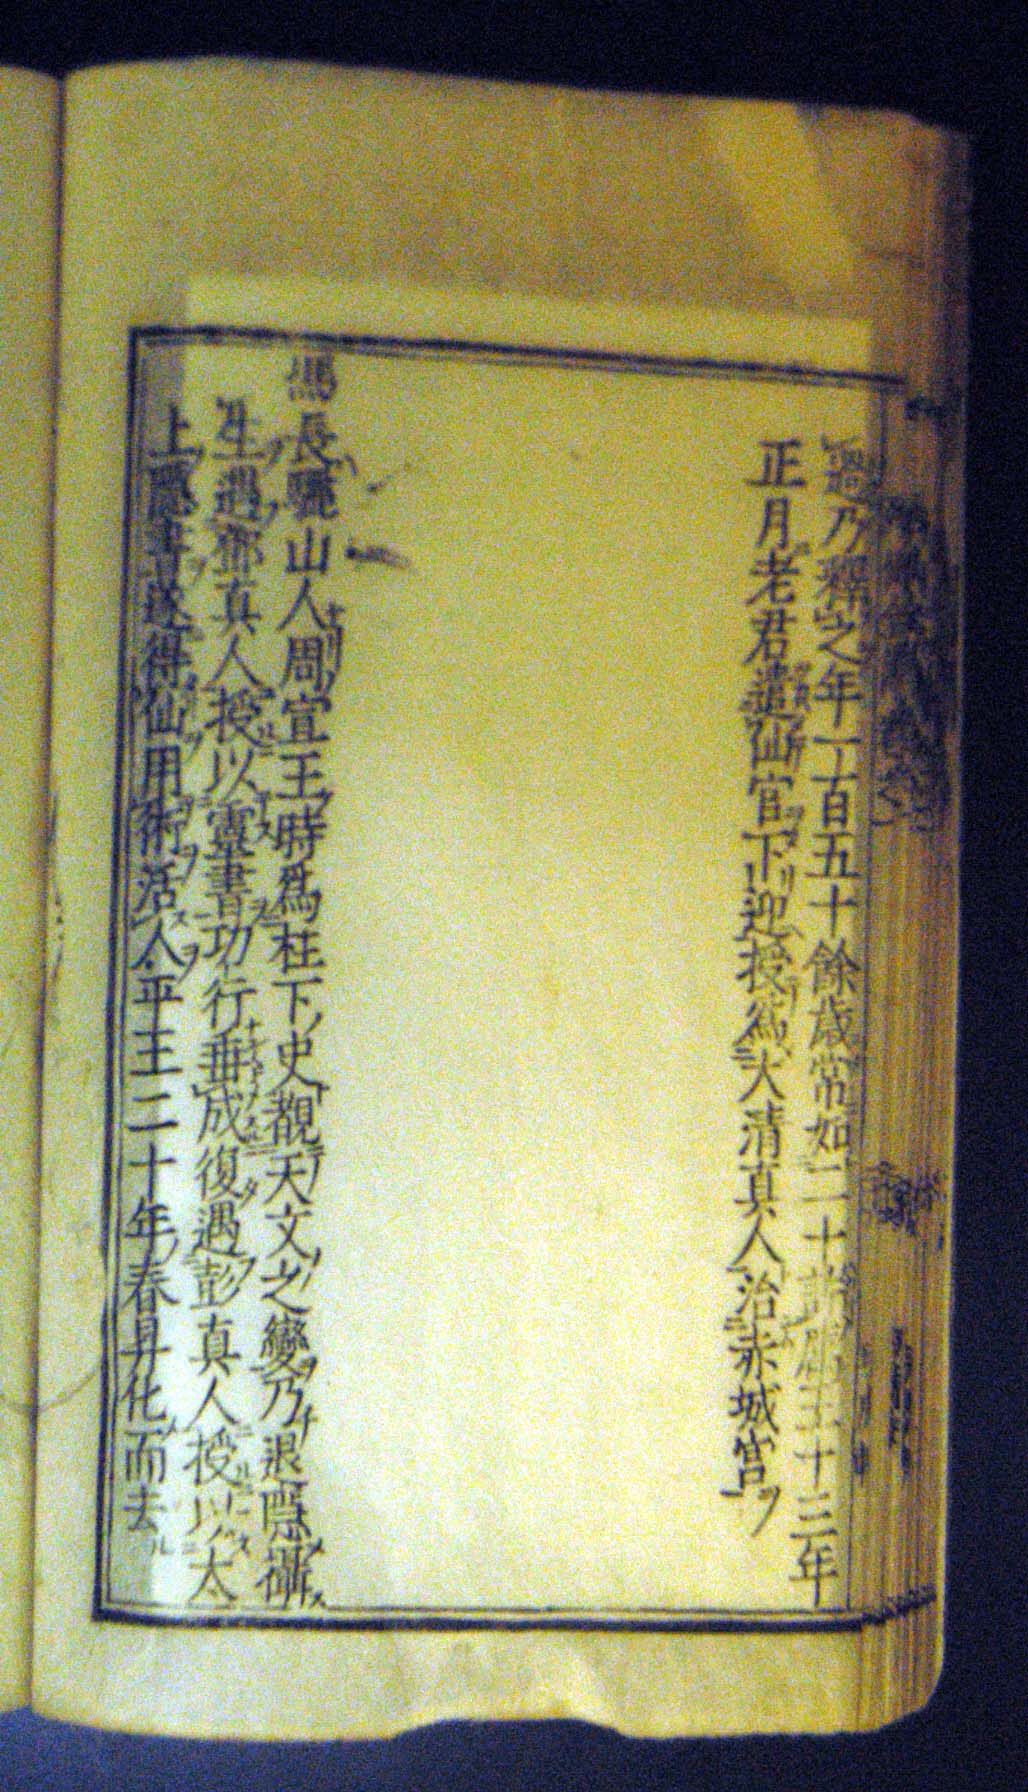 過乃釋之年一百五十餘歳常如二十許王十三年
正月老君遣仙官下迎授為太清真人治赤城宮
馮長驪山人周宣王時爲柱下史覩天文之變乃退隱攝
生遇鄧真人授以靈書功行垂成復遇彭真人授以太
上隱書遂得仙用術活人平王二十年春昇化而去